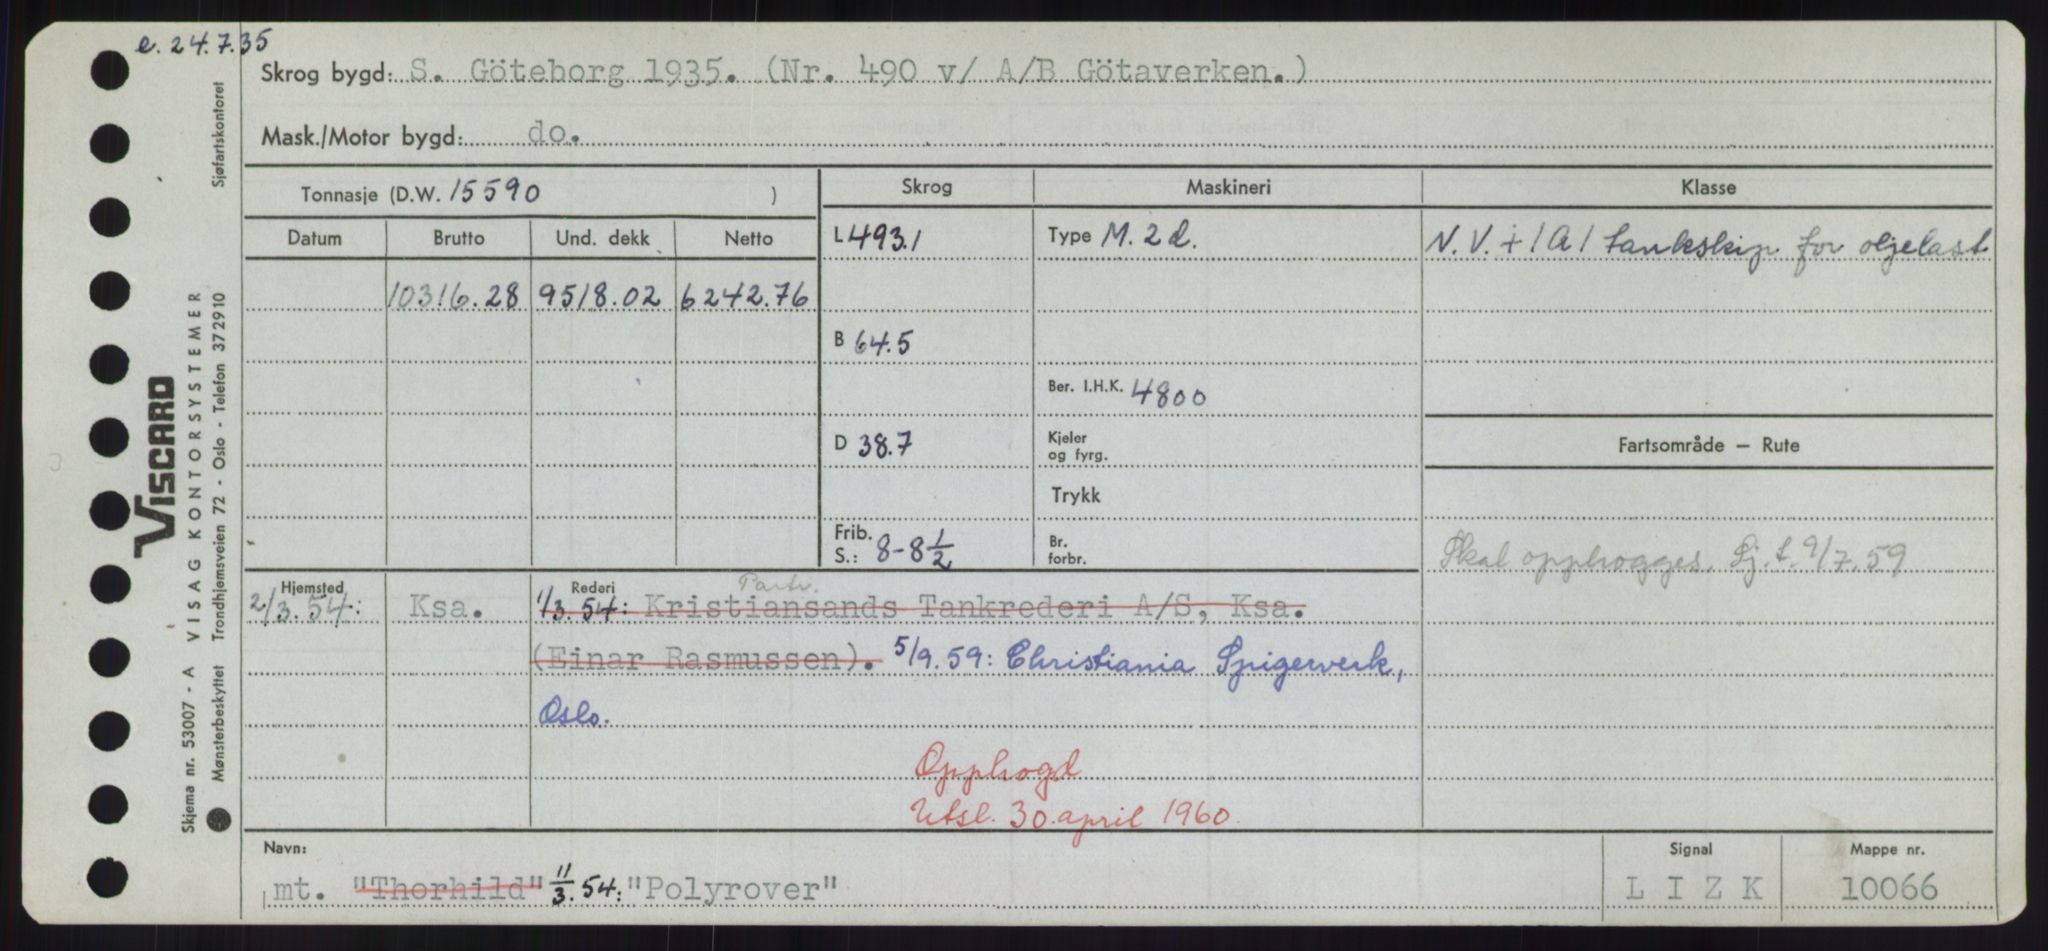 e. 24.7.35
Skrog bygd: S. Göteborg 1935. (Nr. 490 v/ A/B Götaverken.)
Mask./Motor bygd: do.
Tonnasje (D.W. 15590 )
Skrog Maskineri Klasse
Datum Brutto Und. dekk Netto
L 493.1 Type M. 2 d. N.V. + 1A1 tankskip for oljelast
10316.28 9518.02 6242.76
B 64.5
Ber. I.H.K. 4800
D 38.7 Kjeler og fyrg. Fartsområde – Rute
Trykk
Frib. S.: 8-8 1/2 Br. forbr.
Skal opphogges. Sj. t. 9/7.59
Hjemsted Rederi Partr.
2/3.54: Ksa. 1/3.54: Kristiansands Tankrederi A/S, Ksa.
(Einar Rasmussen). 5/9.59: Christiania Spigerverk,
Oslo.
Opphogd
Utsl. 30. april 1960.
Navn: Signal Mappe nr.
mt. "Thorhild" 11/3.54: "Polyrover" L I Z K 10066
Skjema nr. 53007 - A VISAG KONTORSYSTEMER
VISCARD
Mønsterbeskyttet Trondhjemsveien 72 - Oslo - Telefon 372910
Sjøfartskontoret